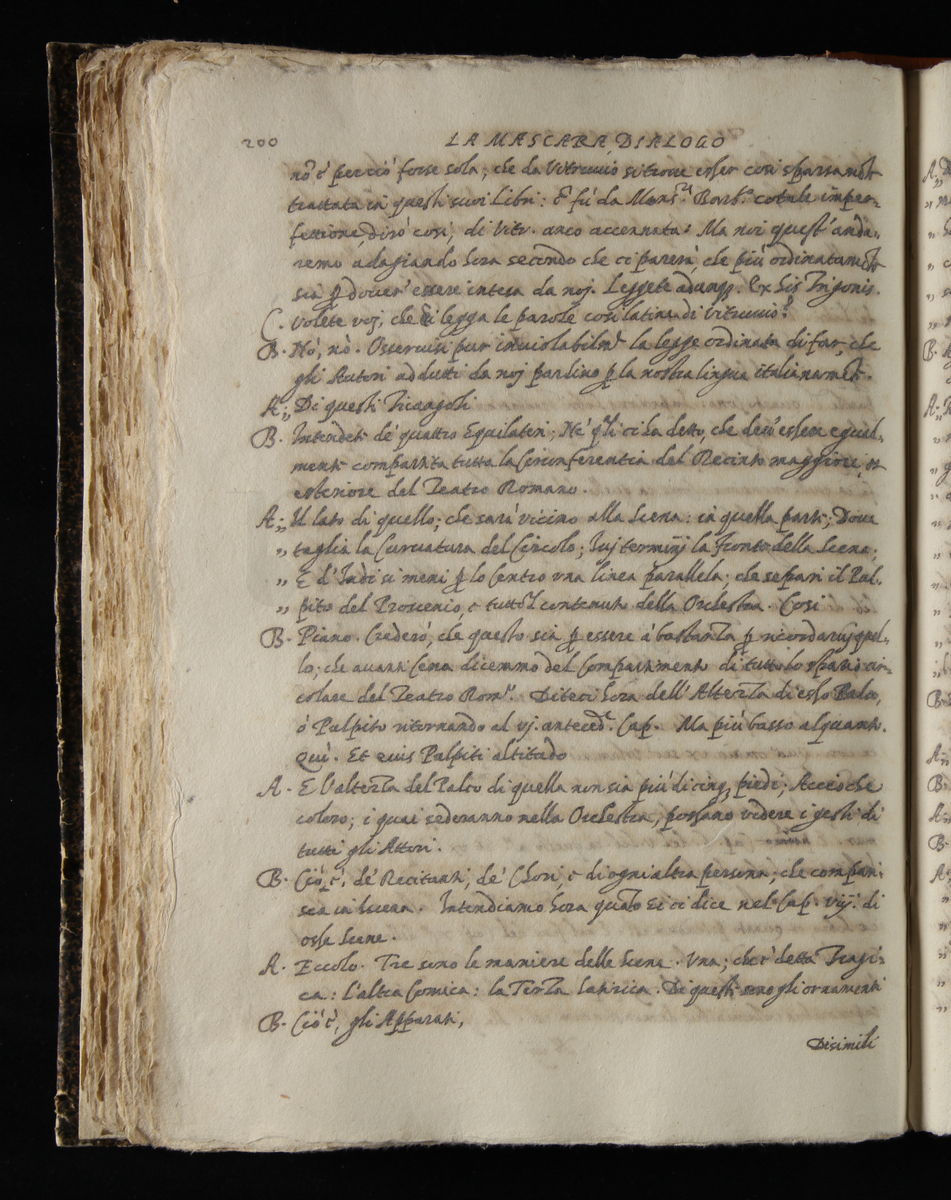 200 LA MASCARA, DIALOGO
nō è perciò forse sola, che da Vitruvio si trove esser così sparsamẽte
trattata in questi suoi libri: E fù da Mons.r Barb.o cotale imper-
fettione, dirò così, di Vitr. anco accennata. Ma noi quest' anda-
remo adagiando hora secondo che ci parerà, che più ordinatamẽte
sia p dover' essere intesa da noj. Leggete adunq. Ex his Trigonis.
C. Volete voj, che si legga le parole così latine di Vitruvio?
B. Nò, nò. Osservisi pur inviolabilm.te la legge ordinata di far, che
gli Autori addutti da noj parlino p la nostra lingua italianamẽte.
A. ,, Di questi Triangoli
B. Intendete de' quattro Equilateri; Ne' qli ci ha detto, che dev' essere equal-
mente compartita tutta la Circonferentia del Recinto maggiore, et
esteriore del Teatro Romano.
A. ,, Il lato di quello; che sarà vicino alla Scena: in quella parte; Dove
,, taglia la Curvatura del Circolo; Ivj terminj la fronte della Scena;
,, E d' Indi si meni p lo Centro una linea parallela; che separi il Pul-
,, pito del Proscenio, e tutto'l contenuto della Orchestra. Così
B. Piano. Crederò, che questo sia p essere à bastanza p ricordarvj quel-
lo; che avanti Cena dicemmo del Compartimento di tutto lo spatio cir-
colare del Teatro Rom.o. Diteci hora dell' Altezza di esso Palco,
ò Pulpito ritornando al vj. anteced.te Cap. Ma più basso alquanto.
Quì. Et eius Pulpiti altitudo
A. E l'altezza del Palco di quella non sia più di cinq. piedi; Acciò che
coloro; i quai sederanno nella Orchestra, possano vedere i gesti di
tutti gli Attori.
B. Ciò è, de' Recitanti, de' Chori, e di ogni altra persona; che compari-
sca in Scena. Intendiamo hora quāto Ei ci dice nel Cap. viij. di
esse Scene.
A. Eccolo. Tre sono le maniere delle Scene. Una; che è detta Tragi-
ca: L'altra Comica: la Terza Satirica. Di queste sono gli ornamenti
B. Ciò è, gli Apparati,
Disimili